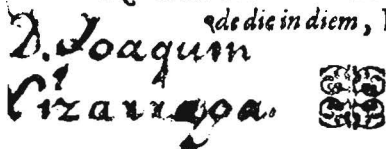 de die in diem,
D. Joaquim
Lizarragoa.